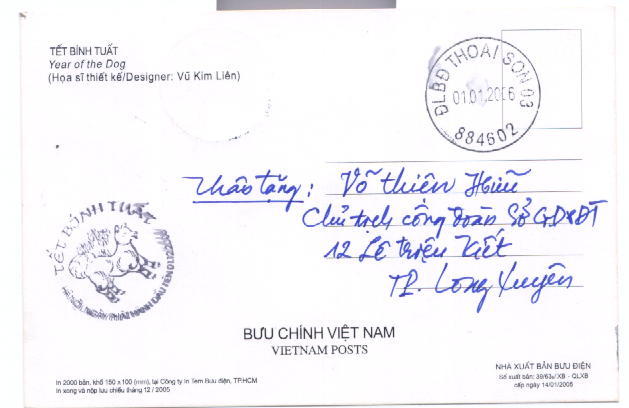 TẾT BÍNH TUẤT
Year of the Dog
(Họa sĩ thiết kế/Designer: Vũ Kim Liên)
ĐLBĐ THOẠI SƠN 03
01.01.2006
884602
Thân tặng: Võ Thiện Hữu
Chủ tịch công đoàn Sở GD&ĐT
12 Lê Triệu Kiết
TP. Long Xuyên
TẾT BÍNH TUẤT
HÀ NỘI, NGÀY PHÁT HÀNH ĐẦU TIÊN
BƯU CHÍNH VIỆT NAM
VIETNAM POSTS
In 2000 bản, khổ 150 x 100 (mm), tại Công ty In Tem Bưu điện, TP.HCM
In xong và nộp lưu chiểu tháng 12 / 2005
NHÀ XUẤT BẢN BƯU ĐIỆN
Số xuất bản: 39/63a/XB - QLXB
cấp ngày 14/01/2005